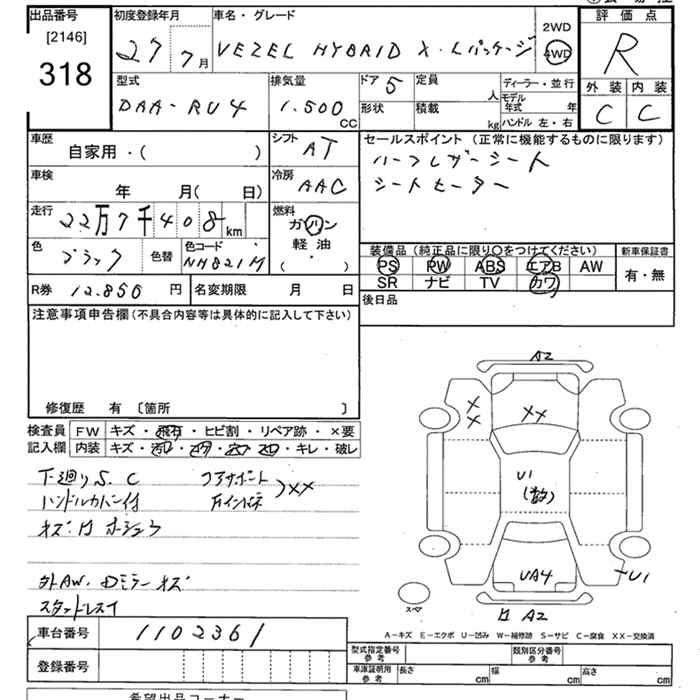 出品番号 初度登録年月 車名・グレード 評価点
[2146] 2WD
318 27 7月 VEZEL HYBRID X・Lパッケージ 4WD R
型式 排気量 ドア 定員 ディーラー・並行 外装 内装
DAA-RU4 1.500 CC 5 人 モデル年式 年 C C
形状 積載 kg ハンドル 左・右
車歴 シフト セールスポイント (正常に機能するものに限ります)
自家用・( ) AT ハーフレザーシート
車検 冷房 シートヒーター
年 月( 日) AAC
走行 燃料
22万7千408km ガソリン
軽油
( )
色 色替 色コード
ブラック NH821M
装備品 (純正品に限り○をつけてください) 新車保証書
PS PW ABS エアB AW 有・無
SR ナビ TV カワ
R券 12.850 円 名変期限 月 日 後日品
注意事項申告欄 (不具合内容等は具体的に記入して下さい)
A2
修復歴 有 〔箇所 〕
検査員 FW キズ・飛石・ヒビ割・リペア跡・×要
記入欄 内装 キズ・キレ・破レ
XX XX
下廻りS.C コアサポート
ハンドルカバー付 インパネ XX
U1
(数)
外AW.Dミラーキズ UA4 U1
スタッドレス スペア A2
車台番号 1102361
A-キズ E-エクボ U-凹み W-補修跡 S-サビ C-腐食 XX-交換済
型式指定番号 参考 類別区分番号 参考
登録番号 車庫証明用 参考 長さ cm 幅 cm 高さ cm
希望出品コーナー